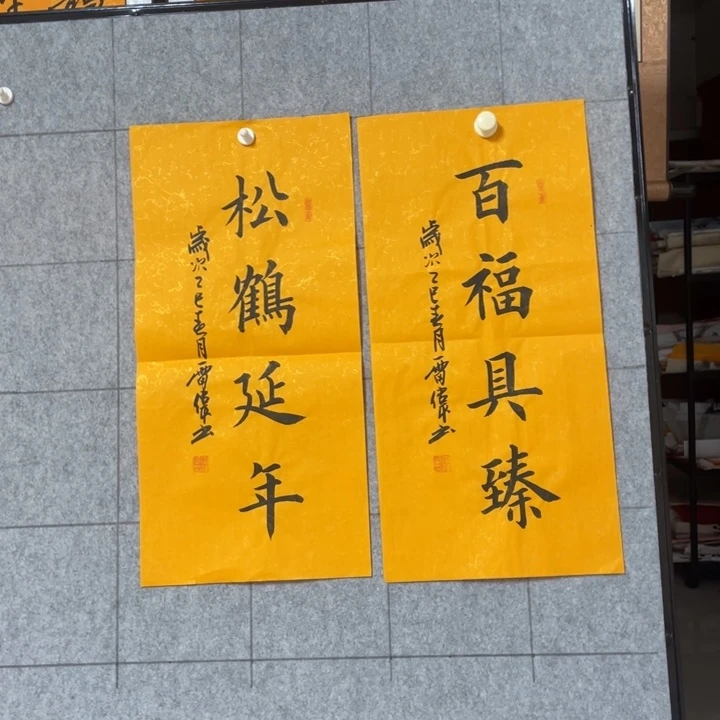 百福具臻
歲次乙巳春月雷偉書
松鶴延年
歲次乙巳春月雷偉書